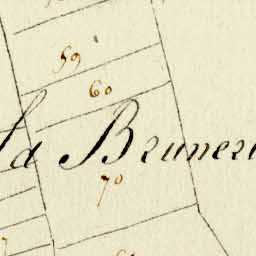 59
60
la Bruneri
70